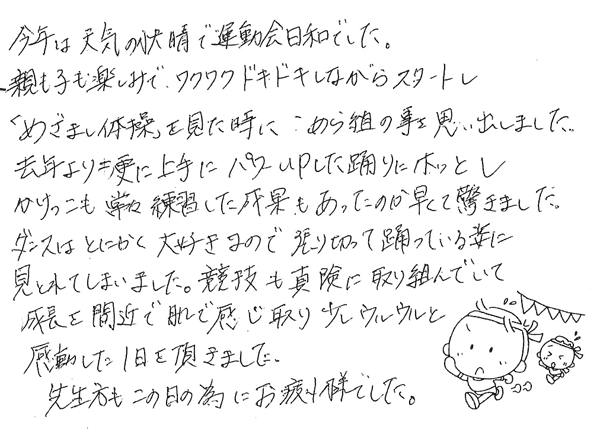 今年は天気の快晴で運動会日和でした。
親も子も楽しみで、ワクワクドキドキしながらスタートし
「めざまし体操」を見た時に、めら組の事を思い出しました。
去年より更に上手にパワーUPした踊りにホッとし
かけっこも 練習した成果もあったのか早くて驚きました。
ダンスはとにかく大好きなので張り切って踊っている姿に
見とれてしまいました。競技も真険に取り組んでいて
成長を間近で肌で感じ取り少しウルウルと
感動した1日を頂きました。
先生方もこの日の為にお疲れ様でした。